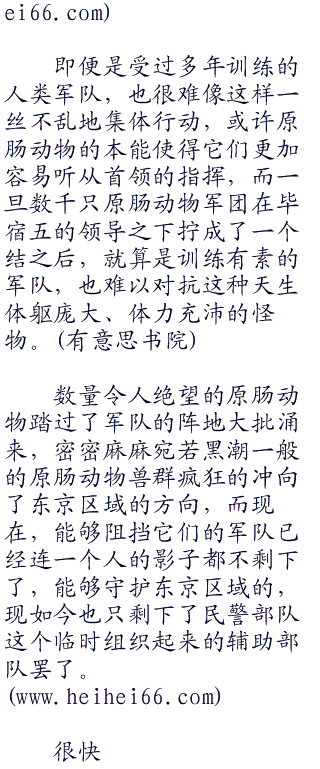 ei66.com)
即便是受过多年训练的
人类军队，也很难像这样一
丝不乱地集体行动，或许原
肠动物的本能使得它们更加
容易听从首领的指挥，而一
旦数千只原肠动物军团在毕
宿五的领导之下拧成了一个
结之后，就算是训练有素的
军队，也难以对抗这种天生
体躯庞大、体力充沛的怪
物。(有意思书院)
数量令人绝望的原肠动
物踏过了军队的阵地大批涌
来，密密麻麻宛若黑潮一般
的原肠动物兽群疯狂的冲向
了东京区域的方向，而现
在，能够阻挡它们的军队已
经连一个人的影子都不剩下
了，能够守护东京区域的，
现如今也只剩下了民警部队
这个临时组织起来的辅助部
队罢了。
(www.heihei66.com)
很快